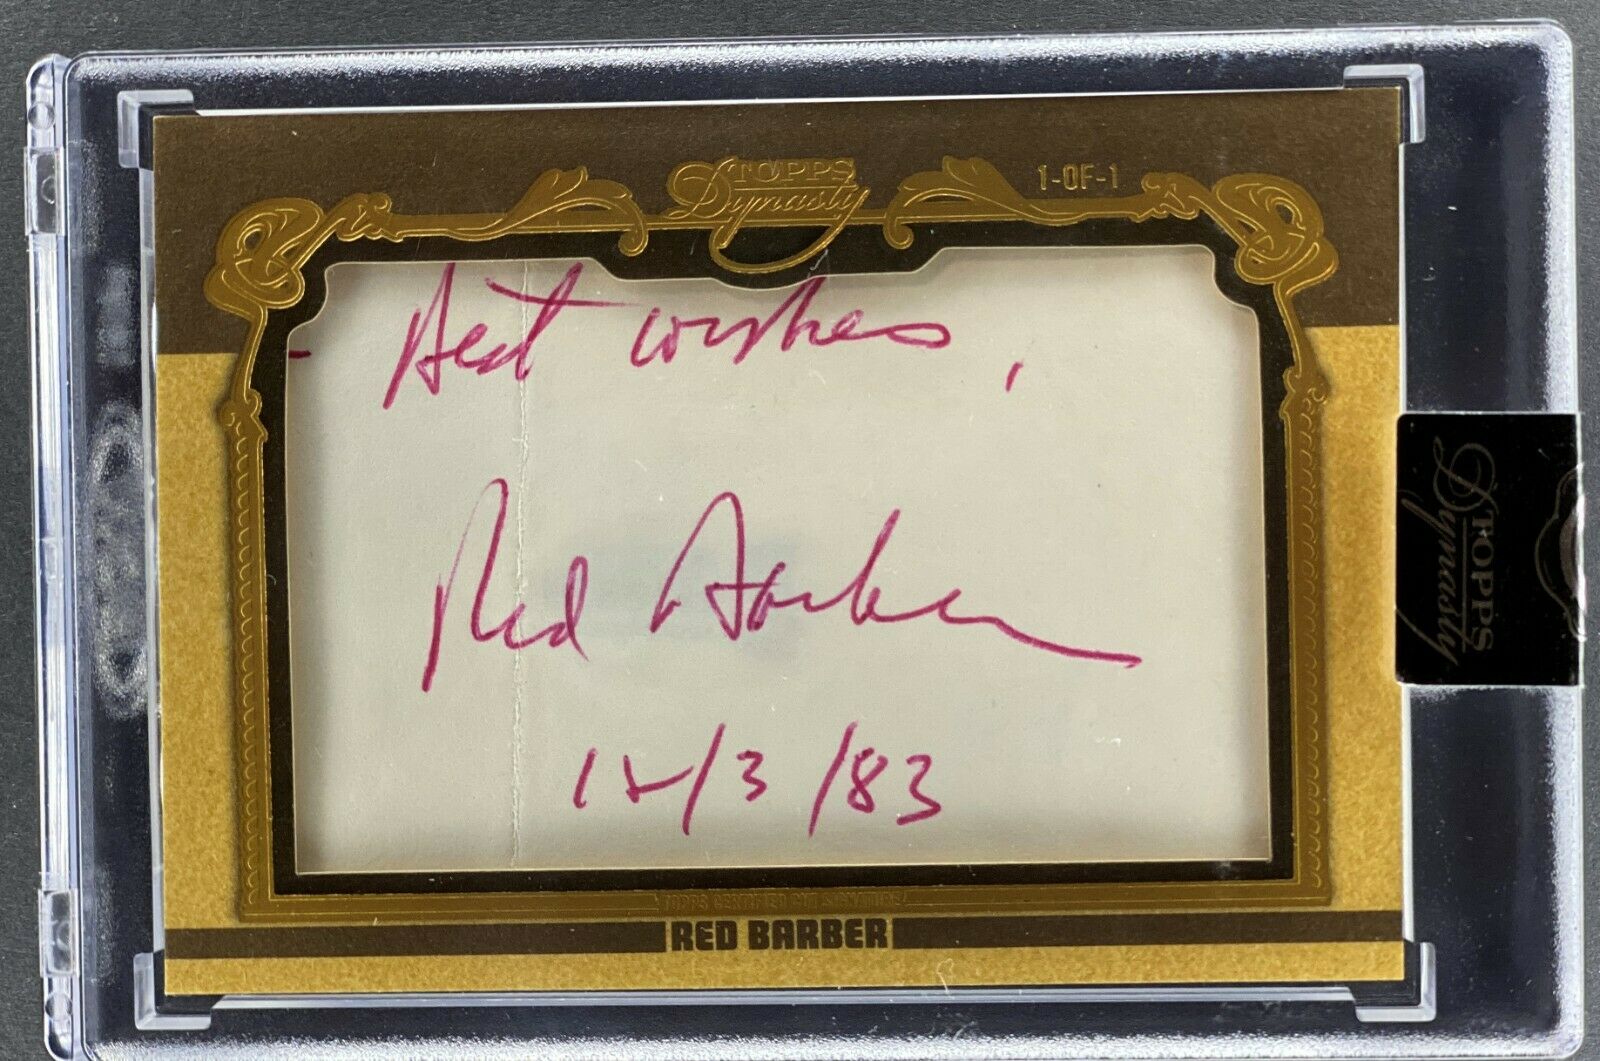 TOPPS
Dynasty
1-OF-1
- Best wishes,
Red Barber
12/3/83
TOPPS CERTIFIED CUT SIGNATURE
RED BARBER
TOPPS
Dynasty